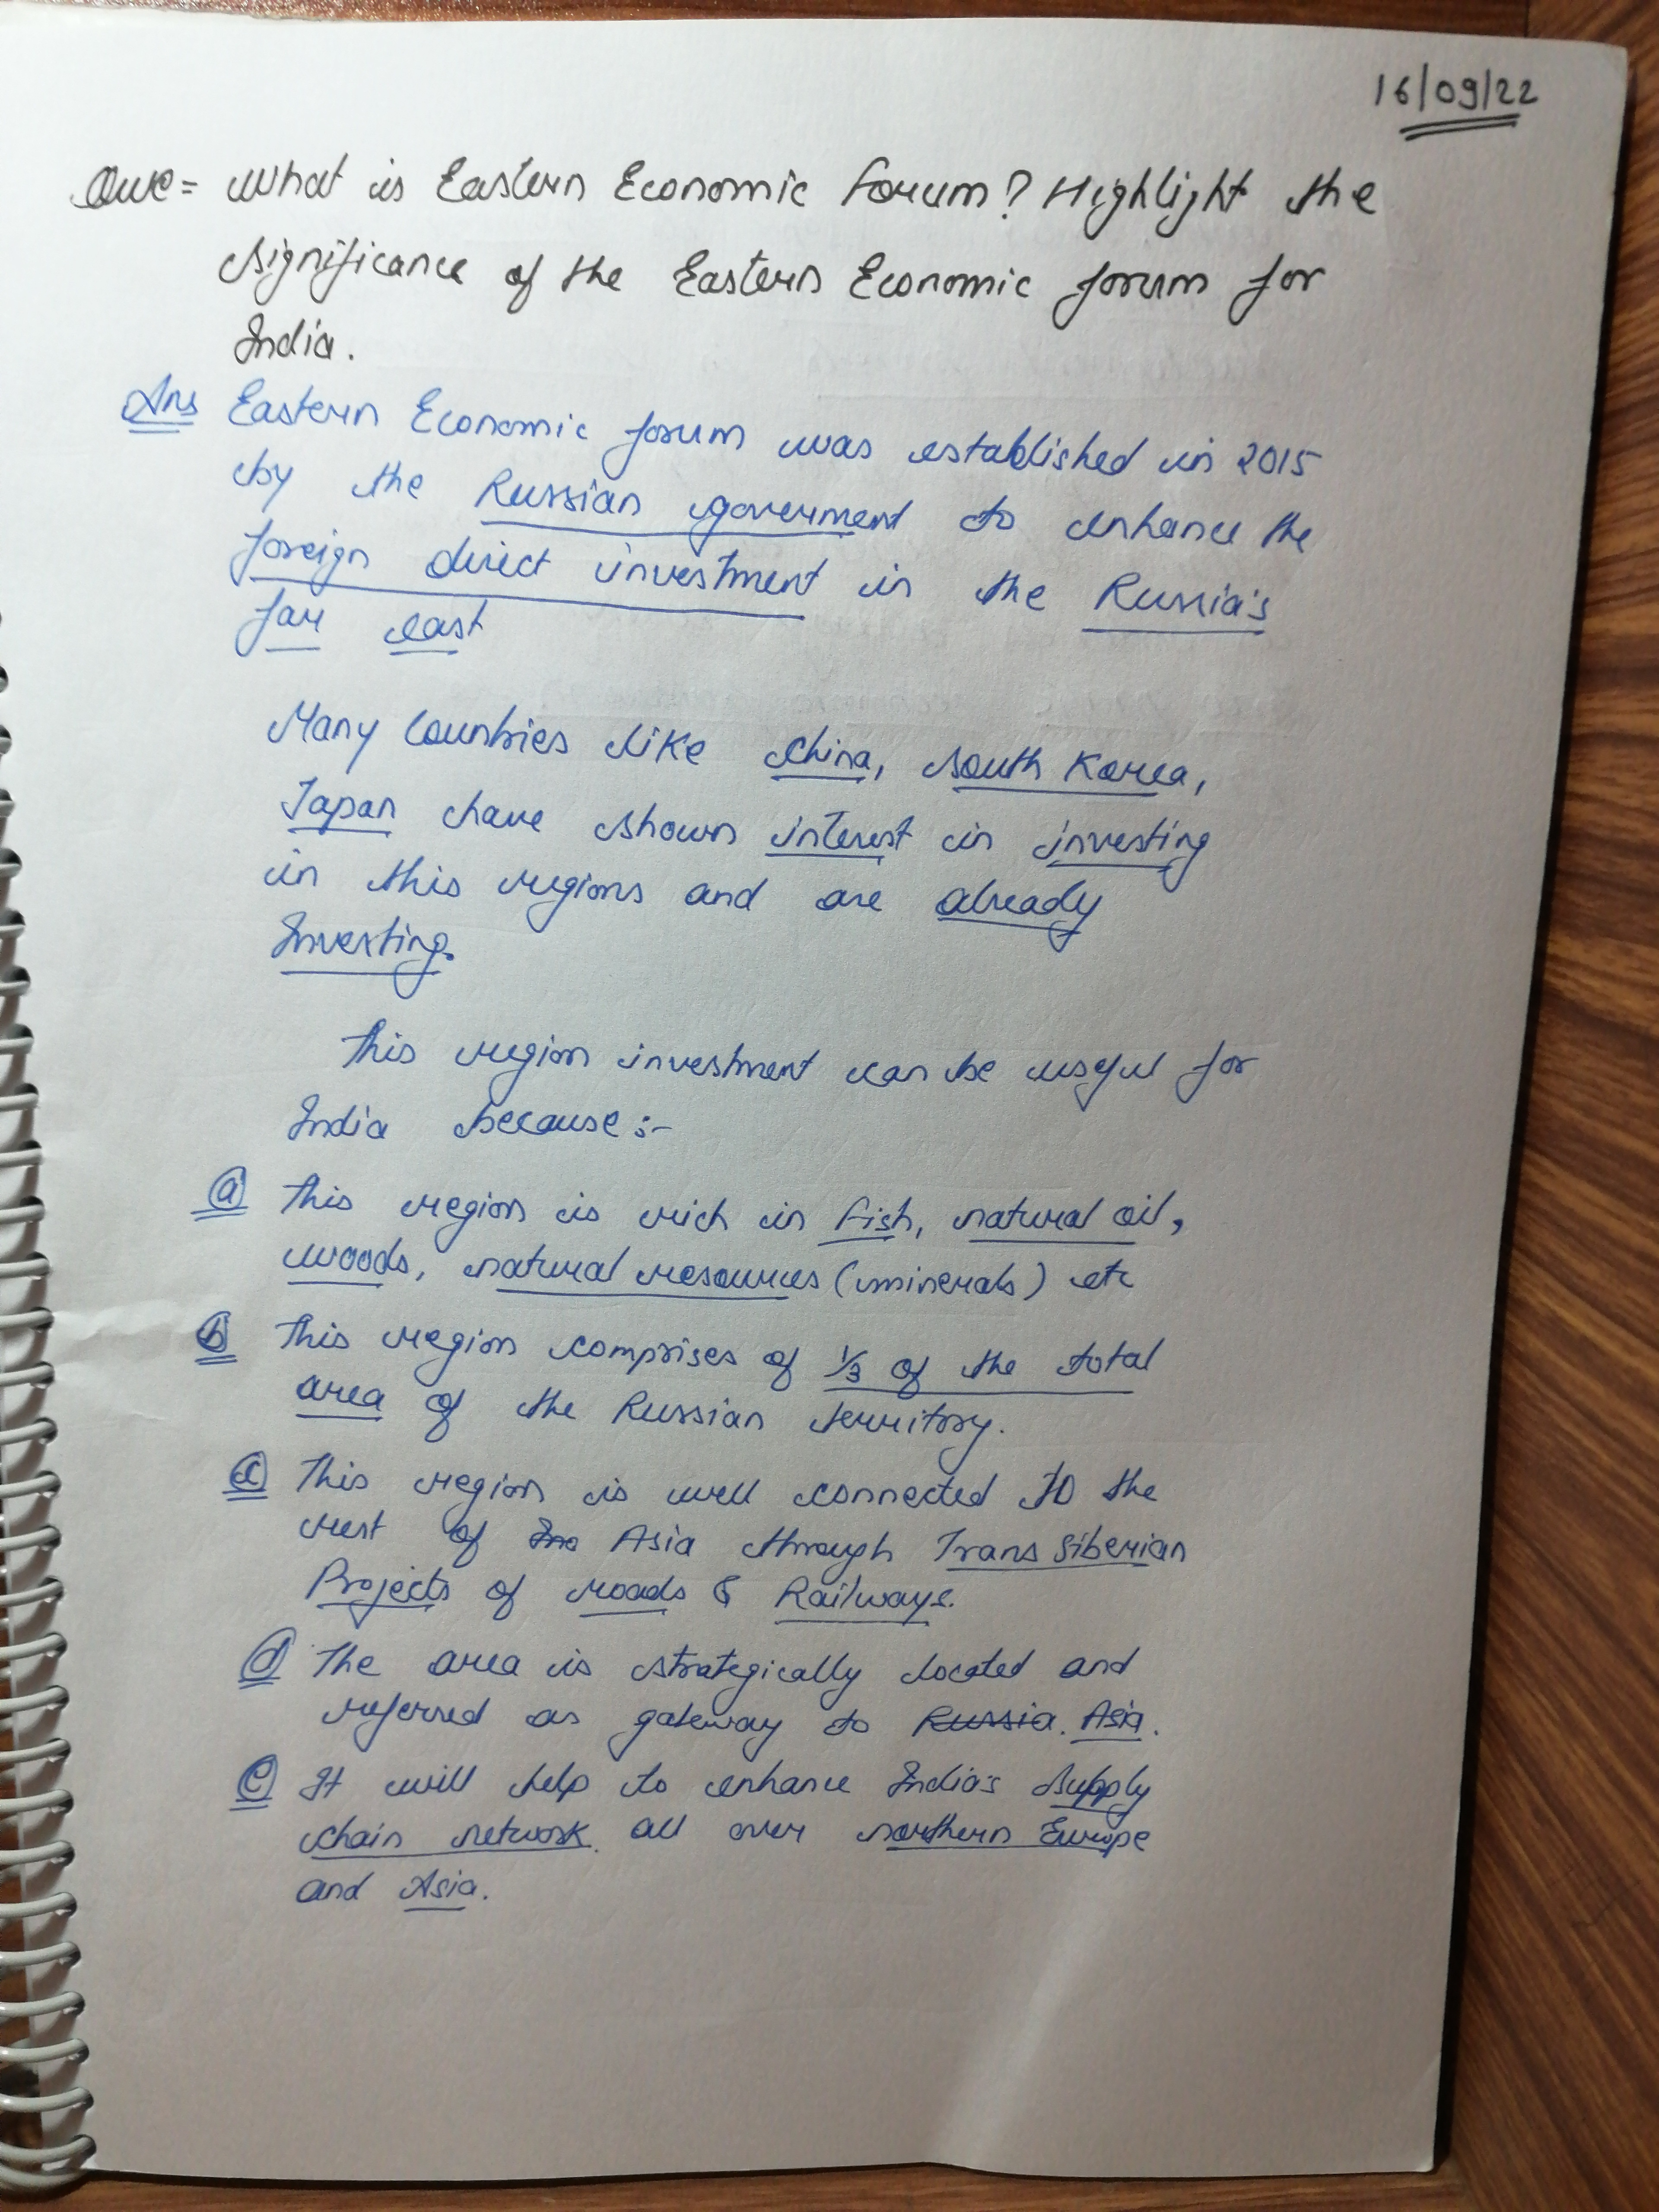 16/09/22
Que = What is Eastern Economic Forum? Highlight the
significance of the Eastern Economic forum for
India.
Ans Eastern Economic forum was established in 2015
by the Russian goverment to enhance the
foreign direct investment in the Russia's
far east
Many Countries like China, South Korea,
Japan have shown interest in investing
in this regions and are already
Investing.
This region investment can be useful for
India because :-
(a) This region is rich in fish, natural oil,
woods, natural resources (minerals) etc
(b) This region comprises of 1/3 of the total
area of the Russian territory.
(c) This region is well connected to the
rest of Asia through Trans Siberian
Projects of roads & Railways.
(d) The area is strategically located and
referred as gateway to Russia. Asia.
(e) It will help to enhance India's supply
chain network all over northern Europe
and Asia.